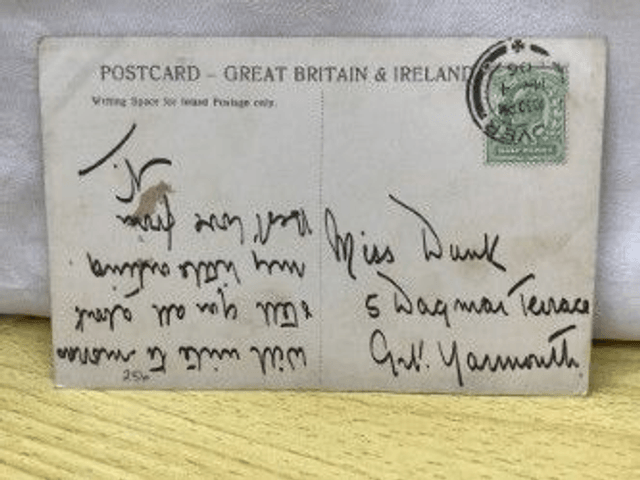 POSTCARD – GREAT BRITAIN & IRELAND
Writing Space for Inland Postage only.
Will write to morrow
& tell you all about
my little outing
Best love from
N.
Miss Dunk
5 Dagmar Terrace
Grt. Yarmouth.
256
OVER
06
HALF PENNY